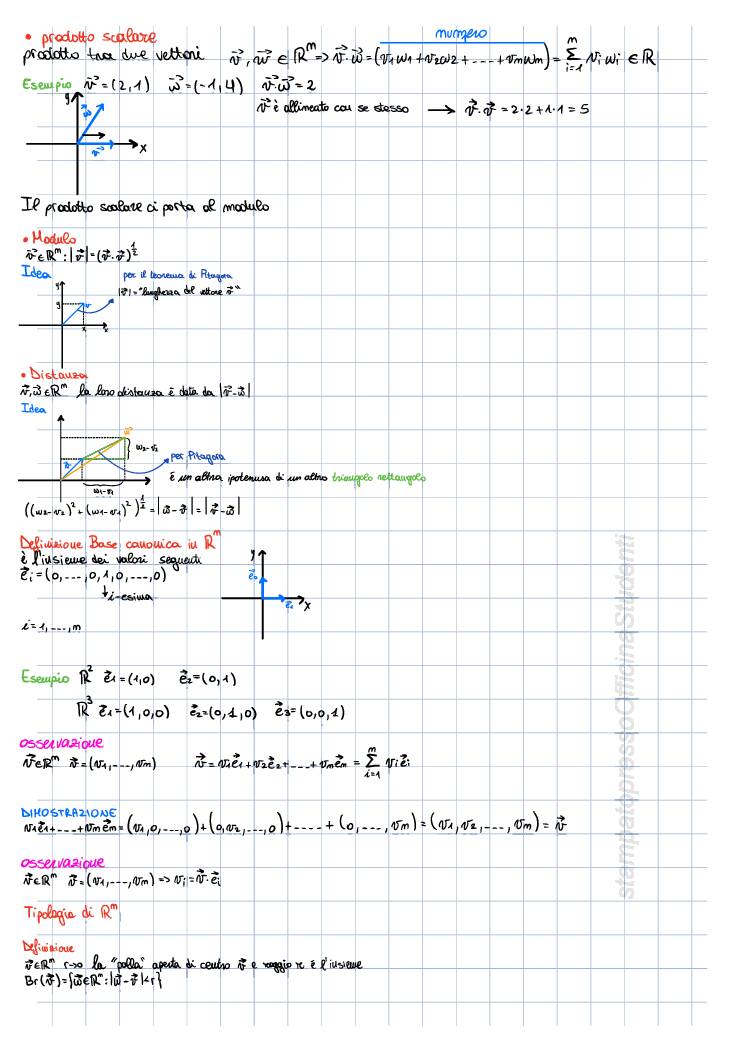 • prodotto scalare
numero
prodotto tra due vettori v⃗, w⃗ ∈ ℝᵐ => v⃗·w⃗ = (v₁w₁+v₂w₂+----+vₘwₘ) = ∑ᵐᵢ₌₁ vᵢwᵢ ∈ ℝ
Esempio v⃗=(2,1) w⃗=(-1,4) v⃗·w⃗=2
y
v⃗ è allineato con se stesso → v⃗·v⃗ = 2·2+1·1 = 5
w⃗
v⃗ x
Il prodotto scalare ci porta al modulo
• Modulo
v⃗∈ℝᵐ: |v⃗|=(v⃗·v⃗)^½
Idea
per il teorema di Pitagora
|v⃗|="lunghezza del vettore v⃗"
y
y v
x x
• Distanza
v⃗,w⃗∈ℝᵐ la loro distanza è data da |v⃗-w⃗|
Idea
w₂-v₂
per Pitagora
è un altra ipotenusa di un altro triangolo rettangolo
w₁-v₁
((w₂-v₂)²+(w₁-v₁)²)^½ = |w⃗-v⃗| = |v⃗-w⃗|
Definizione Base canonica in ℝᵐ
è l'insieme dei valori seguenti
e⃗ᵢ=(0,---,0,1,0,---,0)
↓i-esima
y
e⃗₂
e⃗₁ x
i=1,---,m
Esempio ℝ² e⃗₁=(1,0) e⃗₂=(0,1)
ℝ³ e⃗₁=(1,0,0) e⃗₂=(0,1,0) e⃗₃=(0,0,1)
osservazione
v⃗∈ℝᵐ v⃗=(v₁,---,vₘ) v⃗=v₁e⃗₁+v₂e⃗₂+----+vₘe⃗ₘ = ∑ᵐᵢ₌₁ vᵢe⃗ᵢ
DIMOSTRAZIONE
v₁e⃗₁+----+vₘe⃗ₘ=(v₁,0,---,0)+(0,v₂,---,0)+----+(0,---,vₘ)=(v₁,v₂,---,vₘ)=v⃗
osservazione
v⃗∈ℝᵐ v⃗=(v₁,---,vₘ) => vᵢ=v⃗·e⃗ᵢ
Tipologia di ℝᵐ
Definizione
v⃗∈ℝᵐ r→0 la "palla" aperta di centro v⃗ e raggio r è l'insieme
Br(v⃗)={w⃗∈ℝᵐ:|w⃗-v⃗|<r}
stampatopressoOfficinaStudenti